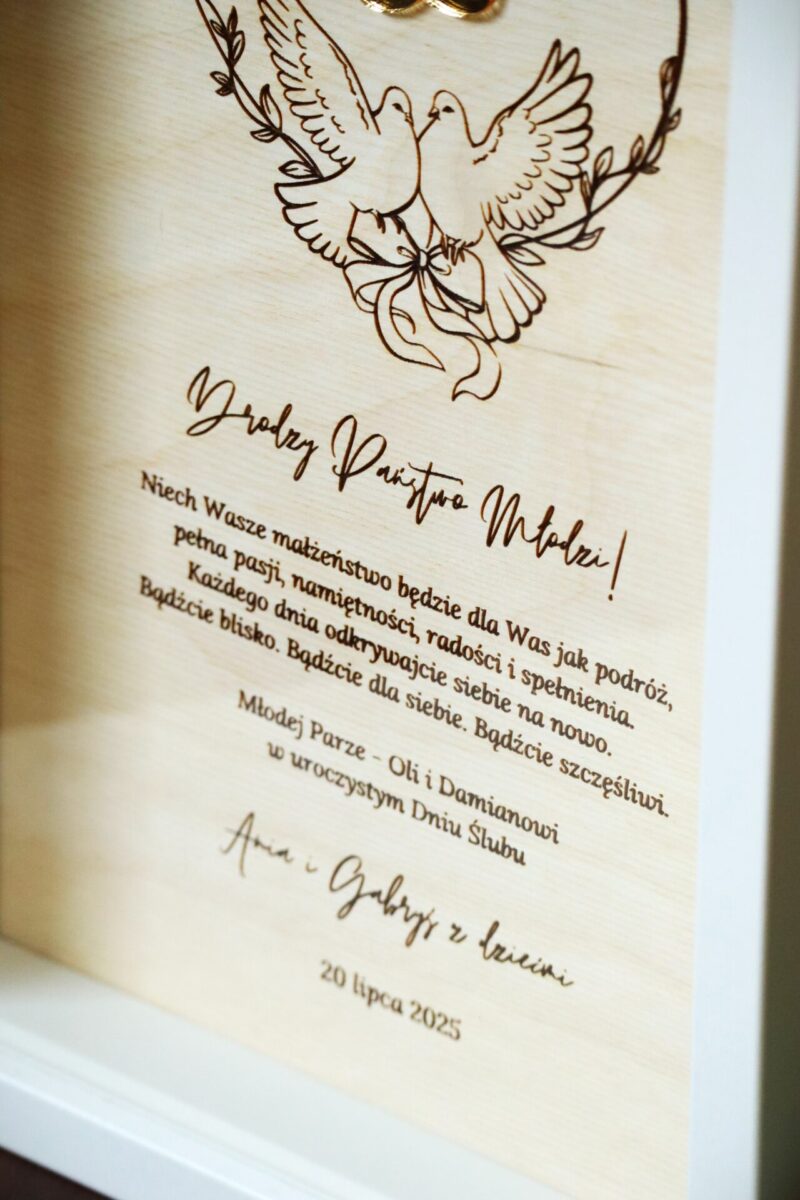 Drodzy Państwo Młodzi!
Niech Wasze małżeństwo będzie dla Was jak podróż,
pełna pasji, namiętności, radości i spełnienia.
Każdego dnia odkrywajcie siebie na nowo.
Bądźcie blisko. Bądźcie dla siebie. Bądźcie szczęśliwi.
Młodej Parze - Oli i Damianowi
w uroczystym Dniu Ślubu
Ania i Gabryś z dziećmi
20 lipca 2025